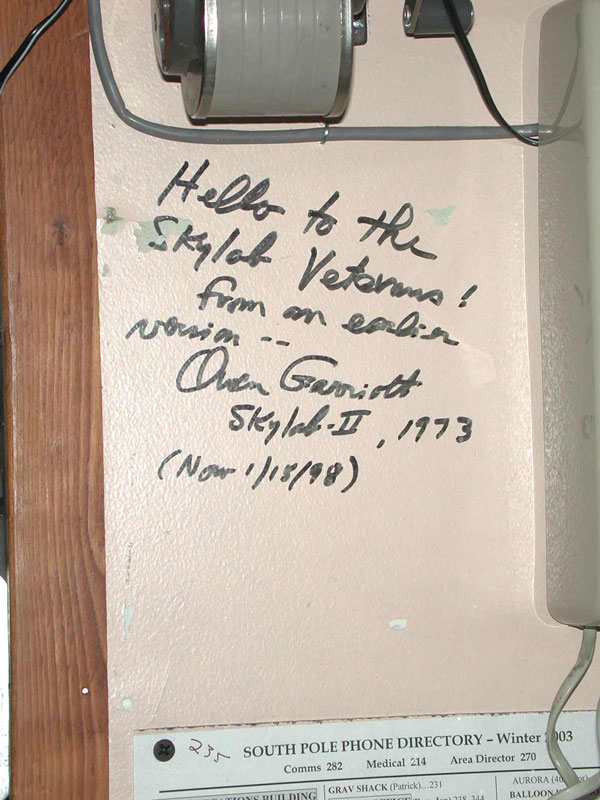 Hello to the
Skylab Veterans!
from an earlier
version --
Owen Garriott
Skylab-II, 1973
(Now 1/18/98)
235
SOUTH POLE PHONE DIRECTORY – Winter 2003
Comms 282 Medical 214 Area Director 270
GRAV SHACK (Patrick)...231
AURORA
BUILDING
BALLOON